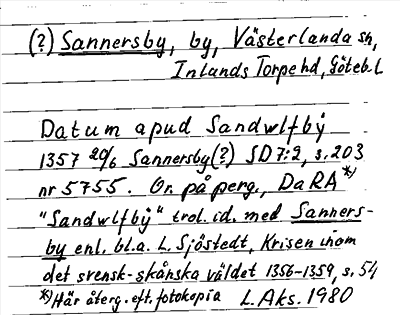 (?) Sannersby, by, Västerlanda sn,
Inlands Torpe hd, Göteb. L
Datum apud Sandwlfbÿ
1357 20/6 Sannersby(?) SD 7:2, s. 203
nr 5755. Or. på perg., DaRA *)
"Sandwlfbÿ" trol. id. med Sanners-
by enl. bl.a. L. Sjöstedt, Krisen inom
det svensk-skånska väldet 1356-1359, s. 54
*) Här återg. eft. fotokopia L. Aks. 1980